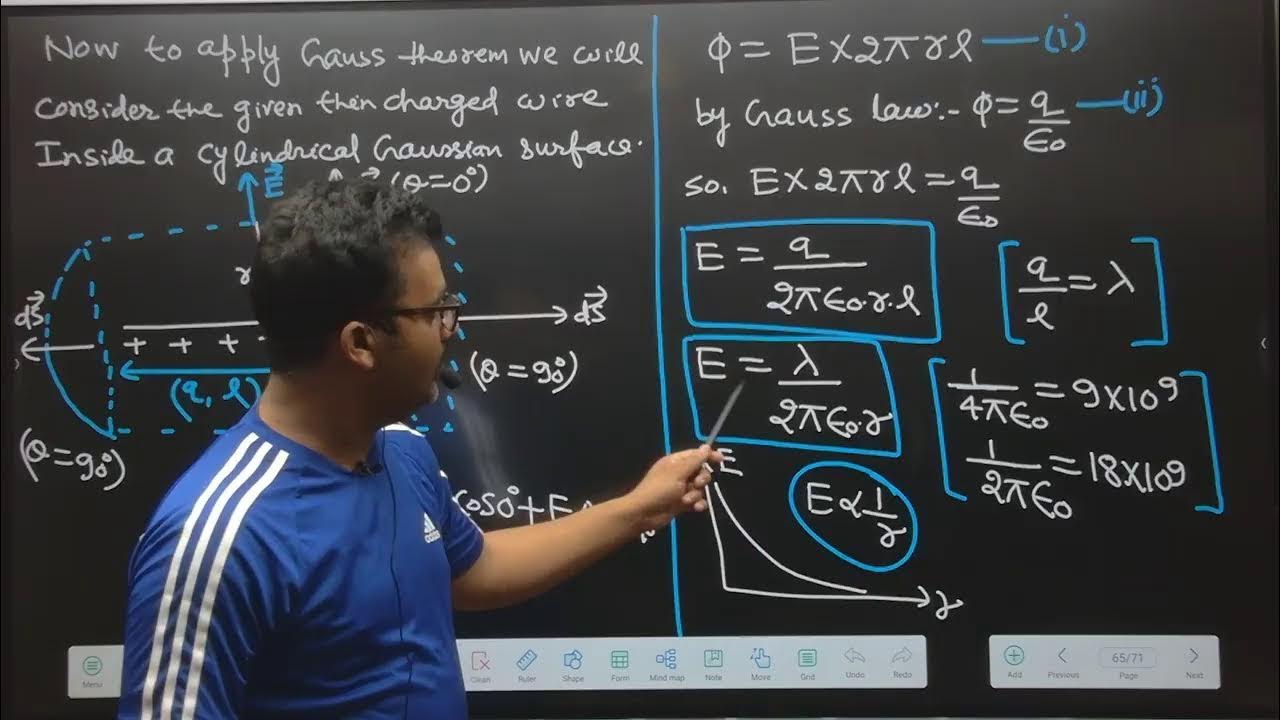 Now to apply Gauss theorem we will
consider the given thin charged wire
Inside a cylindrical Gaussian surface.
E⃗
(θ=0°)
r
dS⃗
dS⃗
+ + +
(q, l)
(θ=90°)
(θ=90°)
cos0°+E
ϕ = E×2πrl —(i)
by Gauss law:- ϕ = q/ϵ₀ —(ii)
so. E×2πrl = q/ϵ₀
E = q/2πϵ₀.r.l
[q/l = λ]
E = λ/2πϵ₀.r
[1/4πϵ₀ = 9×10⁹
1/2πϵ₀ = 18×10⁹]
E
E∝1/r
r
adidas
Menu
Clean
Ruler
Shape
Form
Mind map
Note
Move
Grid
Undo
Redo
Add
Previous
65/71
Page
Next